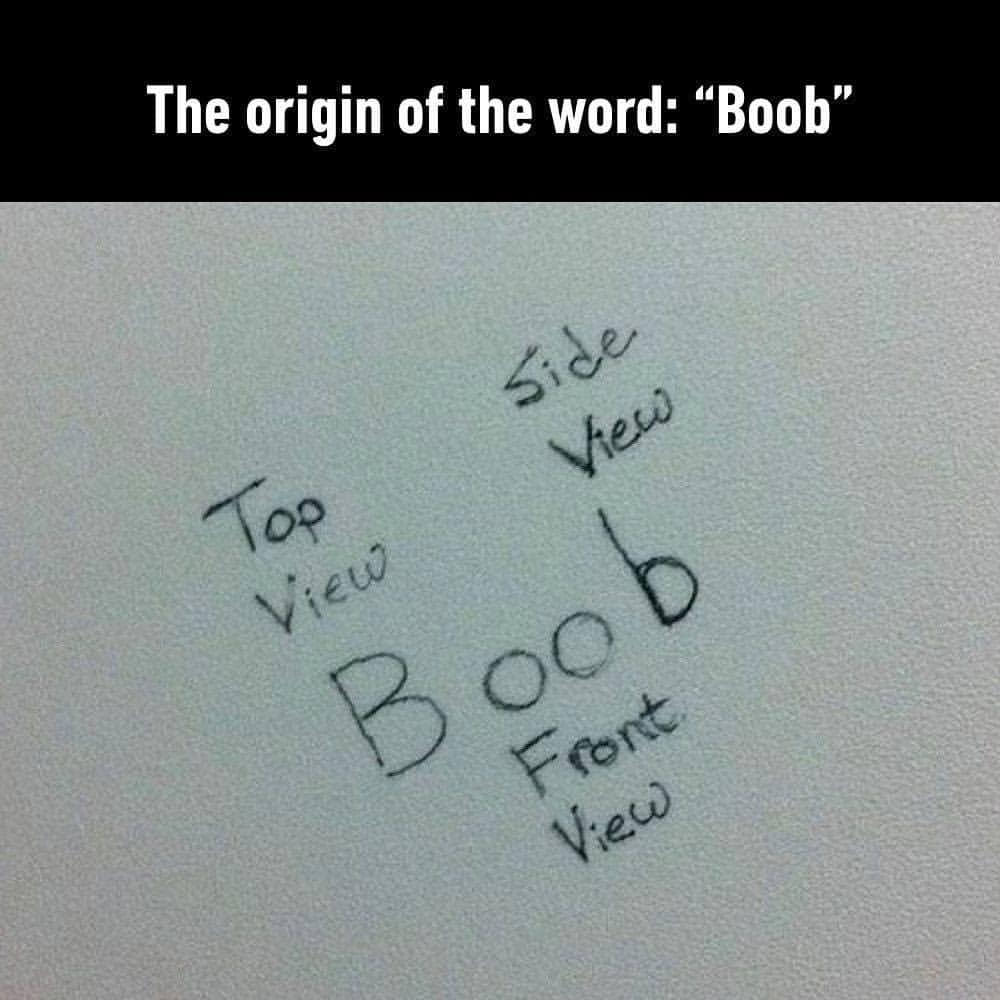 The origin of the word: “Boob”
Side
View
Top
View
Boob
Front
View